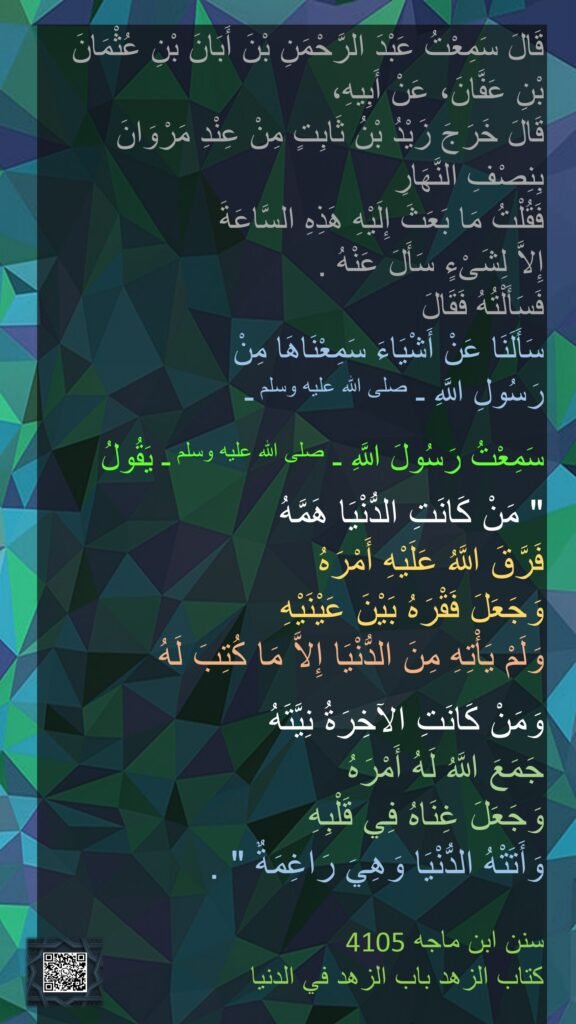 قَالَ سَمِعْتُ عَبْدَ الرَّحْمَنِ بْنَ أَبَانَ بْنِ عُثْمَانَ
بْنِ عَفَّانَ، عَنْ أَبِيهِ،
قَالَ خَرَجَ زَيْدُ بْنُ ثَابِتٍ مِنْ عِنْدِ مَرْوَانَ
بِنِصْفِ النَّهَارِ
فَقُلْتُ مَا بَعَثَ إِلَيْهِ هَذِهِ السَّاعَةَ
إِلاَّ لِشَىْءٍ سَأَلَ عَنْهُ .
فَسَأَلْتُهُ فَقَالَ
سَأَلَنَا عَنْ أَشْيَاءَ سَمِعْنَاهَا مِنْ
رَسُولِ اللَّهِ ـ صلى الله عليه وسلم ـ
سَمِعْتُ رَسُولَ اللَّهِ ـ صلى الله عليه وسلم ـ يَقُولُ
" مَنْ كَانَتِ الدُّنْيَا هَمَّهُ
فَرَّقَ اللَّهُ عَلَيْهِ أَمْرَهُ
وَجَعَلَ فَقْرَهُ بَيْنَ عَيْنَيْهِ
وَلَمْ يَأْتِهِ مِنَ الدُّنْيَا إِلاَّ مَا كُتِبَ لَهُ
وَمَنْ كَانَتِ الآخِرَةُ نِيَّتَهُ
جَمَعَ اللَّهُ لَهُ أَمْرَهُ
وَجَعَلَ غِنَاهُ فِي قَلْبِهِ
وَأَتَتْهُ الدُّنْيَا وَهِيَ رَاغِمَةٌ " .
سنن ابن ماجه 4105
كتاب الزهد باب الزهد في الدنيا